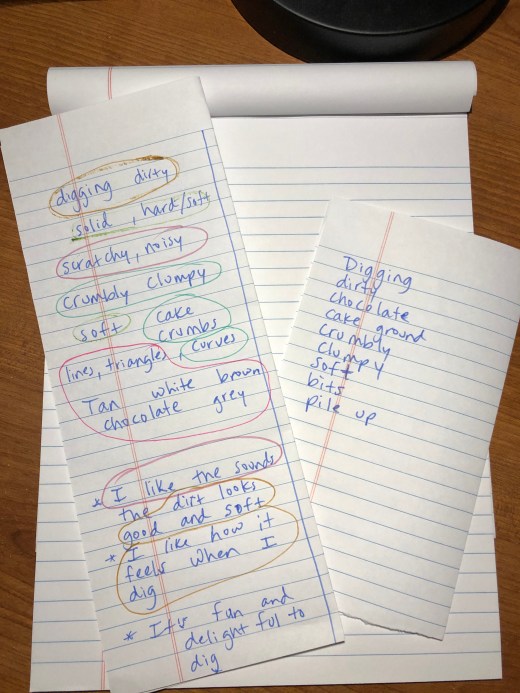 digging dirty
solid, hard/soft
scratchy, noisy
crumbly clumpy
soft cake
crumbs
lines, triangles, curves
Tan white brown
chocolate grey
* I like the sounds
the dirt looks
good and soft
* I like how it
feels when I
dig
* It's fun and
delight ful to
dig
Digging
dirty
chocolate
cake ground
crumbly
clumpy
soft
bits
pile up